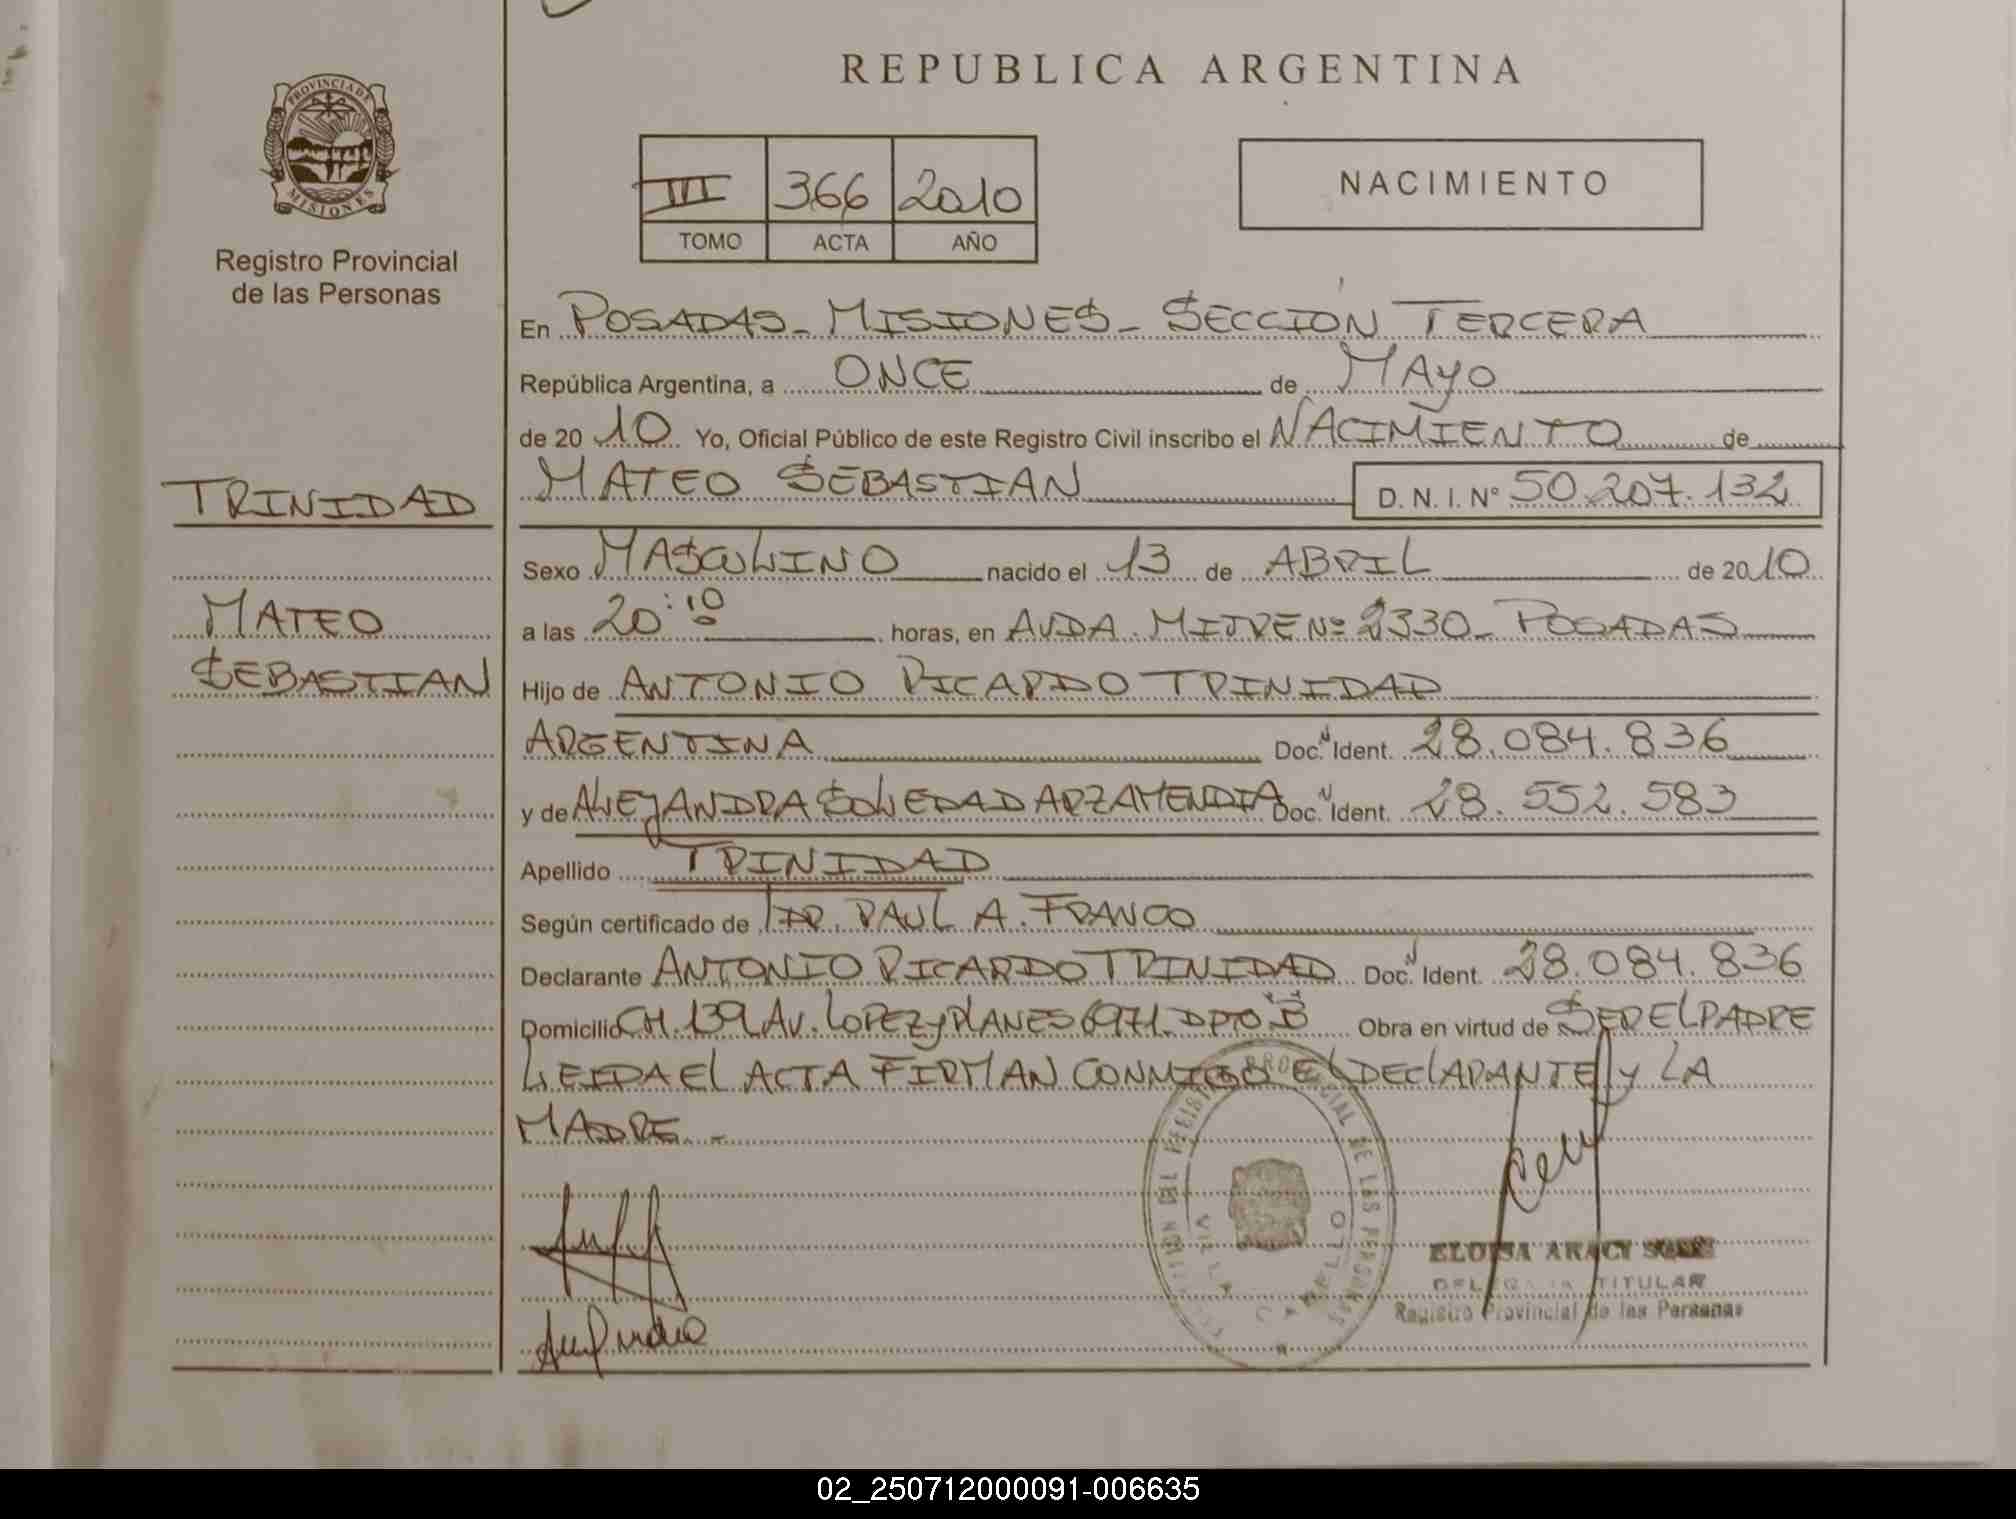 REPUBLICA ARGENTINA
PROVINCIA DE
MISIONES
Registro Provincial
de las Personas
III 366 2010
TOMO ACTA AÑO
NACIMIENTO
En POSADAS - MISIONES - SECCIÓN TERCERA
República Argentina, a ONCE de MAYO
de 20 10 Yo, Oficial Público de este Registro Civil inscribo el NACIMIENTO de
TRINIDAD
MATEO
SEBASTIAN
MATEO SEBASTIAN D. N. I. Nº 50.207.132
Sexo MASCULINO nacido el 13 de ABRIL de 2010
a las 20:10 horas, en AVDA. MITRE Nº 2330 - POSADAS
Hijo de ANTONIO RICARDO TRINIDAD
ARGENTINA Doc. Ident. 28.084.836
y de ALEJANDRA SOLEDAD ARZAMENDIA Doc. Ident. 28.552.583
Apellido TRINIDAD
Según certificado de DR. RAUL A. FRANCO
Declarante ANTONIO RICARDO TRINIDAD Doc. Ident. 28.084.836
Domicilio CH. 139 AV. LOPEZ y PLANES 6971. DPTO "B" Obra en virtud de SER EL PADRE
LEIDA EL ACTA FIRMAN CONMIGO EL DECLARANTE y LA
MADRE. -
DEL REGISTRO PROVINCIAL DE LAS PERSONAS
VILLA CABELLO
ELOISA ARACI
DELEGADA TITULAR
Registro Provincial de las Personas
02_250712000091-006635